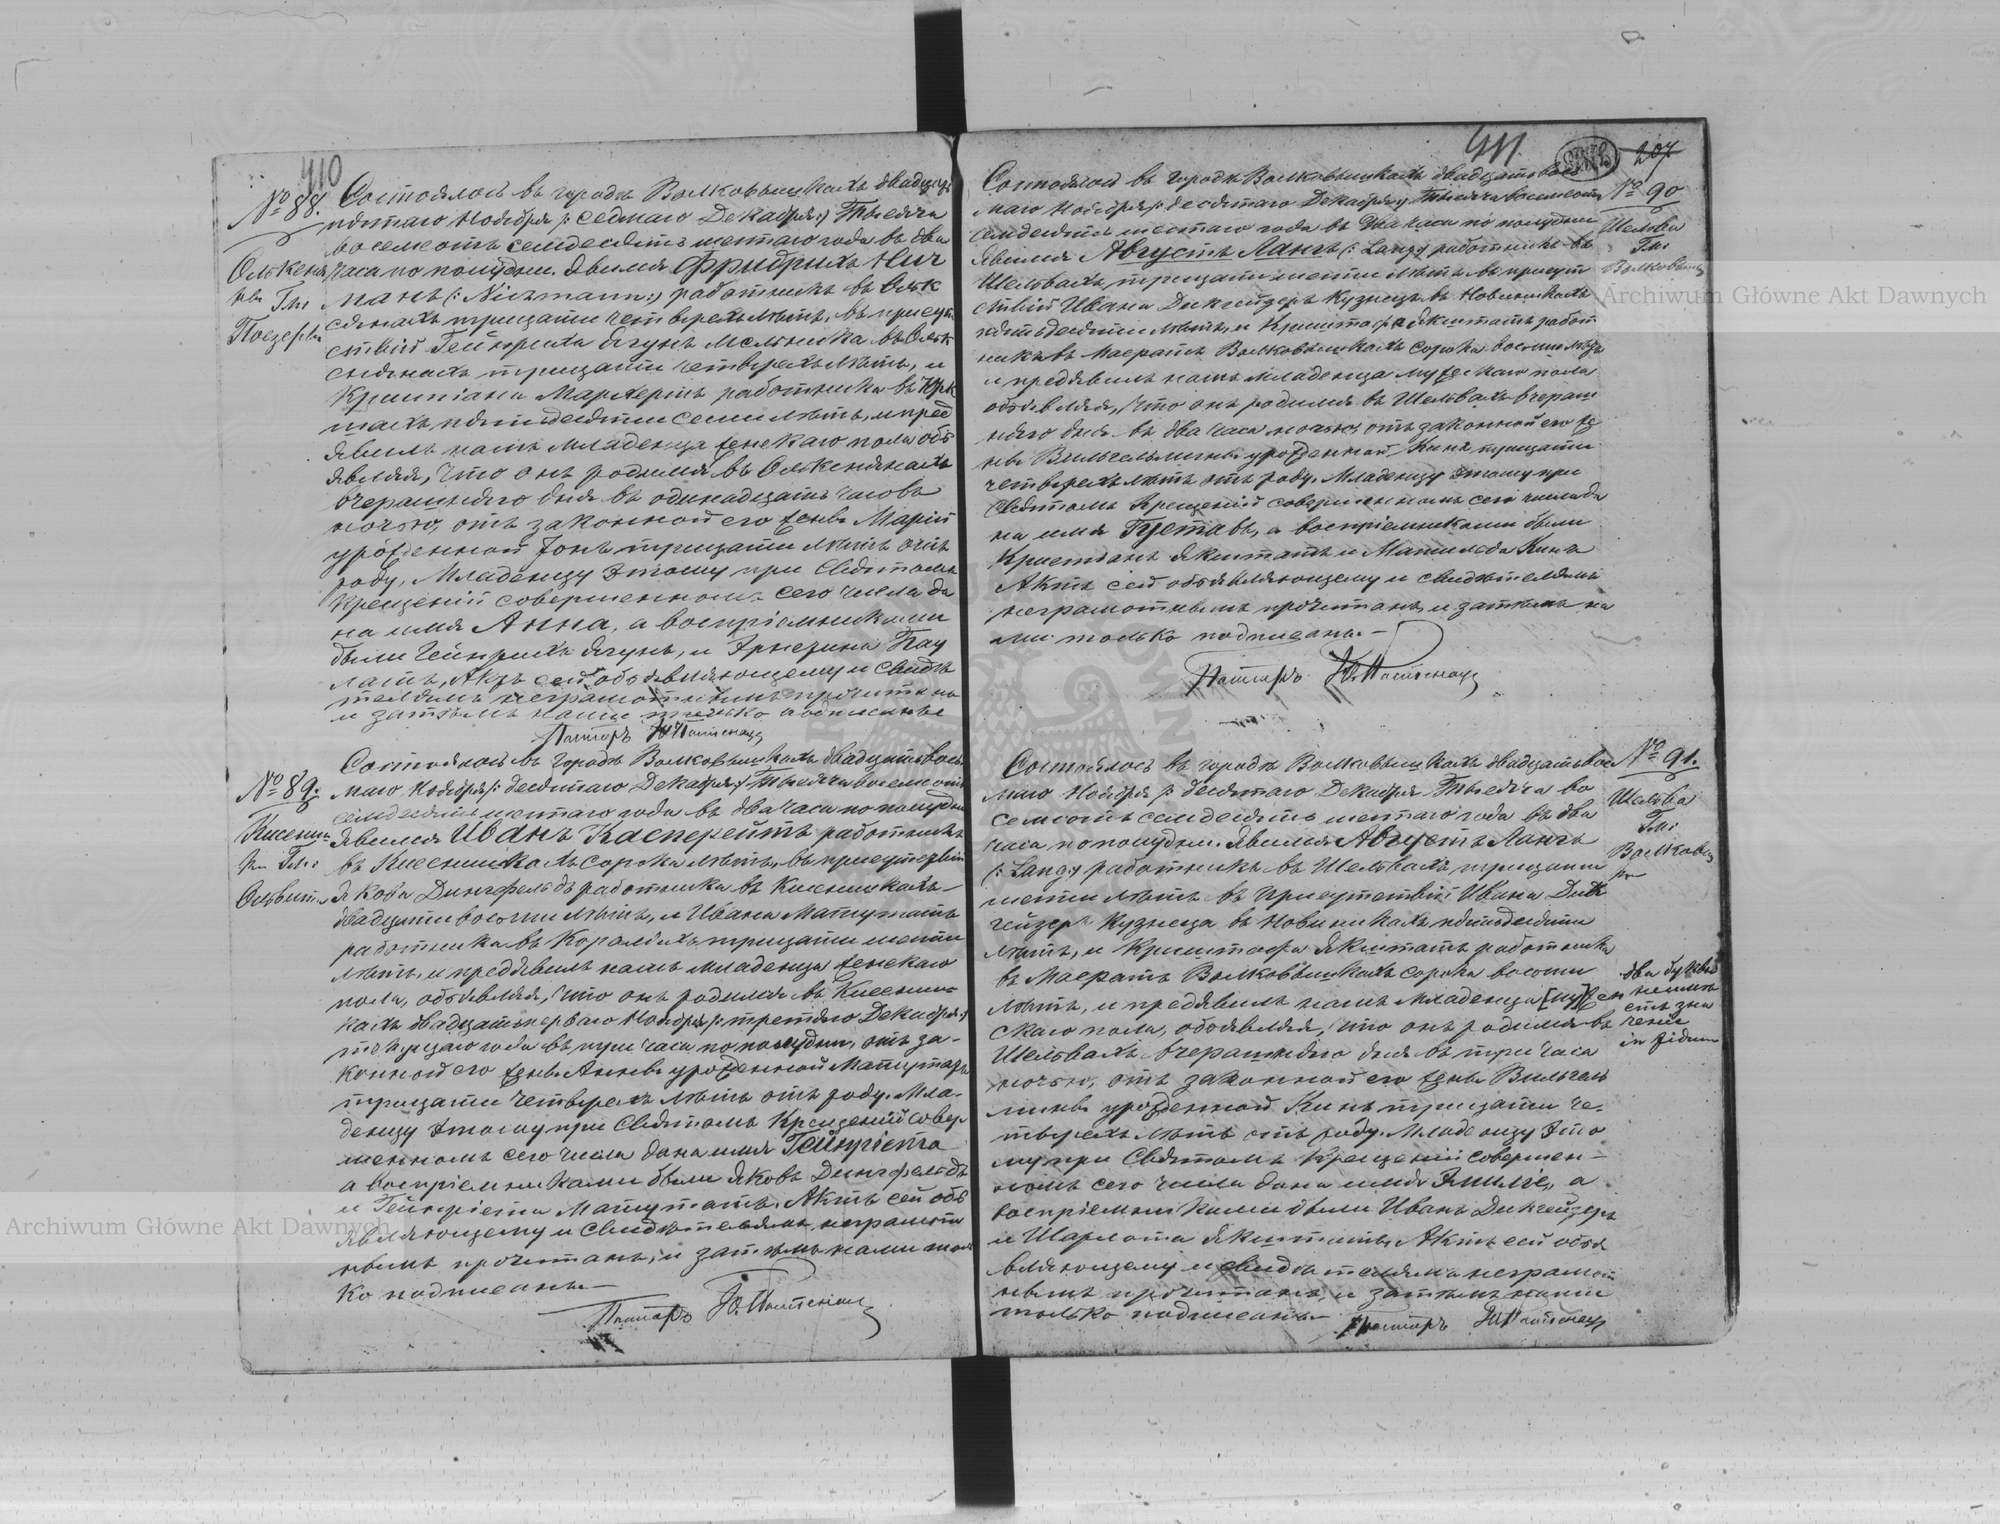 410
№ 88.
Олькеня
ны Гмі
Поезеры
Состоялось въ городѣ Волковышкахъ двадцать
пятаго Ноября /: седмаго Декабря :/ Тысяча
восемсотъ семдесятъ шестаго года въ два
часа по полудни. Явился Фридрихъ Нич
манъ (: Niczmann :) работникъ въ Ольк
сянахъ тридцати четырехъ лѣтъ, въ присут
ствіи Гейнриха Ягунъ мельника въ Ольк
сянахъ тридцати четырехъ лѣтъ, и
Криштіана Мархертъ работника въ
пятьдесяти семи лѣтъ, и пред
явилъ намъ младенца женскаго пола объ
являя, что онъ родился въ Олькенянахъ
вчерашняго дня въ одинадцать часовъ
ночью, отъ законной его жены Маріи
урожденной Іонъ тридцати лѣтъ отъ
роду. Младенцу этому при Святомъ
Крещеніи совершенномъ сего числа да
на имя Анна, а воспріемниками
были Гейнрихъ Ягунъ, и Эрнестина Пау
латъ, Актъ сей объявляющему и свидѣ
телямъ неграмотнымъ прочитанъ
и затѣмъ нами только подписанъ
Пасторъ
№ 89.
Кисениш
ки Гмі
Ольвита
Состоялось въ городѣ Волковышкахъ двадцать вось
маго Ноября /: десятаго Декабря :/ Тысяча восемсотъ
семдесятъ шестаго года въ два часа по полудни
явился Иванъ Касперейтъ работникъ
въ Кисенишкахъ сорока лѣтъ, въ присутствіи
Якова Дингфельдъ работника въ Кисенишкахъ
двадцати восьми лѣтъ, и Ивана Матутатъ
работника въ тридцати шести
лѣтъ, и предявилъ намъ младенца женскаго
пола, объявляя, что онъ родился въ Кисениш
кахъ двадцать перваго Ноября /: третяго Декабря :/
текущаго года въ три часа по полудни, отъ за-
конной его жены Анны урожденной Матутатъ
тридцати четырехъ лѣтъ отъ роду. Мла-
денцу этому при Святомъ Крещеніи совер
шенномъ сего числа дана имя Гейнріета
а воспріемниками были Яковъ Дингфельдъ
и Гейнріета Матутатъ. Актъ сей объ
являющему и свидѣтелямъ неграмот
нымъ прочитанъ, и затѣмъ нами толь
ко подписанъ.—
Пасторъ
411
207
№ 90
Шельва
Гмі
Волковышки
Состоялось въ городѣ Волковышкахъ двадцать вось
маго Ноября /: десятаго Декабря :/ Тысяча восемсотъ
семдесятъ шестаго года въ два часа по полудни
явился Августъ Лангъ (: Lang :) работникъ въ
Шельвахъ, тридцати шести лѣтъ въ присут
ствіи Ивана Дикгейзеръ Кузнеца въ Новиникахъ
пятьдесяти лѣтъ, и Криштофа Якштатъ работ
никъ въ Маератъ Волковышкахъ сорока восьми лѣтъ
и предявилъ намъ младенца мужескаго пола
объявляя, что онъ родился въ Шельвахъ вчераш
няго дня въ два часа ночью, отъ законной его же
ны Вильгельмины урожденной Кинъ тридцати
четырехъ лѣтъ отъ роду. Младенцу этому при
Святомъ Крещеніи совершенномъ сего числа да
на имя Густавъ, а воспріемниками были
Кристіанъ Якштатъ и Матильда Кинъ
Актъ сей объявляющему и свидѣтелямъ
неграмотнымъ прочитанъ, и затѣмъ на
ми только подписанъ.—
Пасторъ
№ 91.
Шельва
Гмі
Волковыш
ки
Состоялось въ городѣ Волковышкахъ двадцать вос
маго Ноября /: десятаго Декабря Тысяча во
семсотъ семдесятъ шестаго года въ два
часа по полудни. Явился Августъ Лангъ
(: Lang :) работникъ въ Шельвахъ тридцати
шести лѣтъ въ присутствіи Ивана Дик
гейзеръ Кузнеца въ Новиникахъ пятьдесяти
лѣтъ, и Криштофа Якштатъ работника
въ Маератъ Волковышкахъ сорока восьми
лѣтъ, и предявилъ намъ младенца [му] жен
скаго пола, объявляя, что онъ родился въ
Шельвахъ вчерашняго дня въ три часа
ночью, отъ законной его жены Вильгель
мины урожденной Кинъ тридцати че-
тырехъ лѣтъ отъ роду. Младенцу это
му при Святомъ Крещеніи совершен-
номъ сего числа дана имя Эмилія, а
воспріемниками были Иванъ Дикгейзеръ
и Шарлота Якштатъ. Актъ сей объя
вляющему и свидѣтелямъ неграмот
нымъ прочитанъ, и затѣмъ нами
только подписанъ.—
Пасторъ
два буквы
неимѣ
етъ зна
ченія
in fidem
Archiwum Główne Akt Dawnych
Archiwum Główne Akt Dawnych